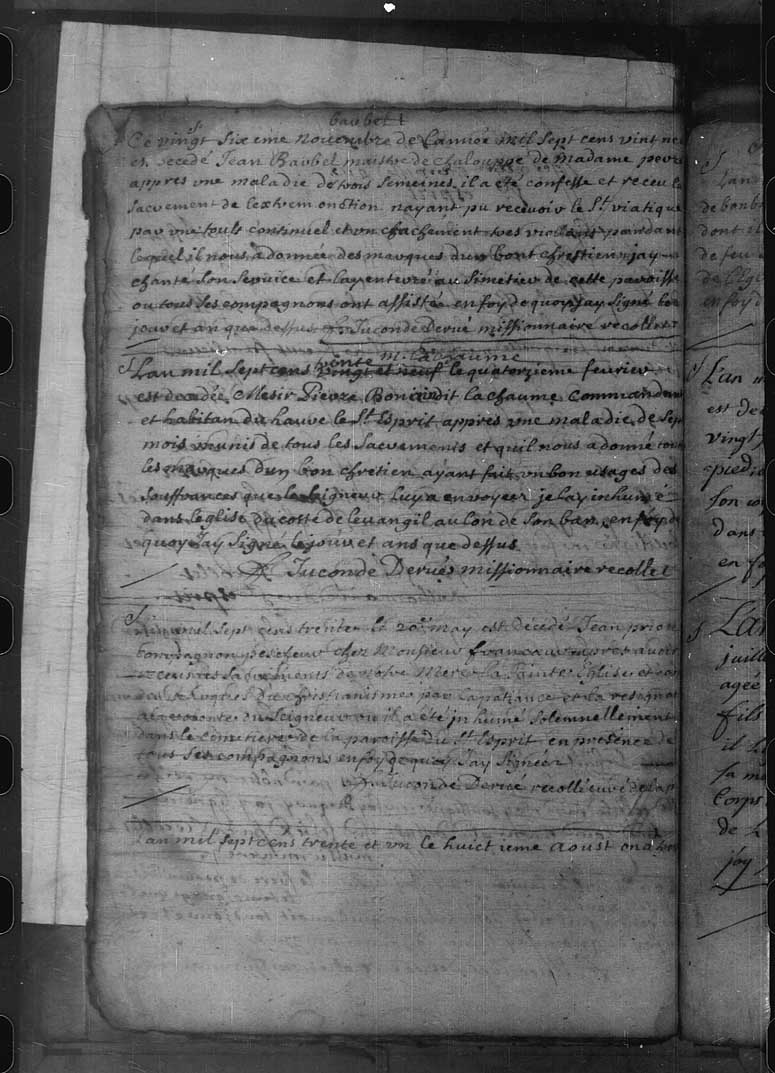 baubel t
Ce vingt six eme novembre de lannée mil sept cens vint ne
est decedé Jean Baubel maistre de chalouppe de madame
appres vne maladie de trois semeines il a eté confesse et receu le
sacrement de lextrem onction nayant pu recevoir le St viatique
par vne toult continuel et vn chachement tres violant pandant
lequel il nous a donnée des marques dun bont chrestien jay
chanté son service et lay enterré au simetier de cette paroisse
ou tous ses compagnons ont assistée en foy de quoy jay signé le
jour et an que dessus fr Juconde Derué missionnaire recollet
trente m. lachaume
Lan mil sept cens vingt et neuf le quatorzieme fevrier
est decedée Mesir Pierre dit la chaume Commandan
et habitan du havre le St Esprit appres vne maladie de sept
mois munis de tous les sacrements et quil nous a donné tout
les marques dun bon chretien ayant fait vn bon usages des
souffrances que le seigneur luy a envoyer je lay inhumé
dans leglise du costé de levangil au lon de son ban en foy de
quoy Jay signé le jour et ans que dessus
fr Juconde Derués missionnaire recollet
Lan mil sept cens trente le 20e may est décédé Jean prio
compagnon pescheur chez Monsieur francaux apres avoir
receu les sacrements de notre Mere la sainte Eglise et
marques du christianisme par la patiance et la resignat
a la volonte du Seigneur ou il a été jnhumé solemnellement
dans le cemetiere de la paroisse du St Esprit en presence de
tous ses compagnons en foy de quoy Jay signeer
fr Juconde Derué recollé curé de la
Lan mil sept cens trente et vn le huict ieme aoust
Lan
de
dont
de feu
de lEgl
en foy d
Lan m
est de
vingt
pied
son
dans
en fo
Lan
juill
agée
fils
il
sa m
Corps
de
foy